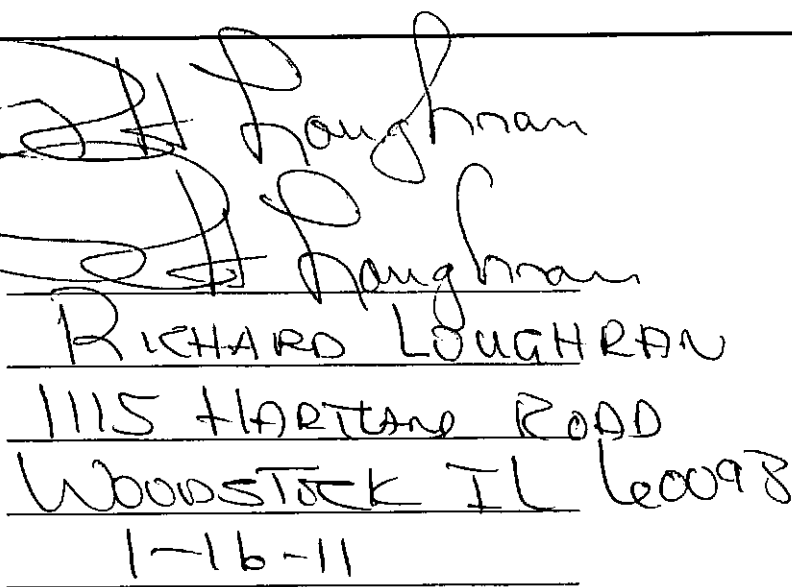 H Loughran
H Loughran
RICHARD LOUGHRAN
1115 HARTLAND ROAD
WOODSTOCK IL 60098
1-16-11